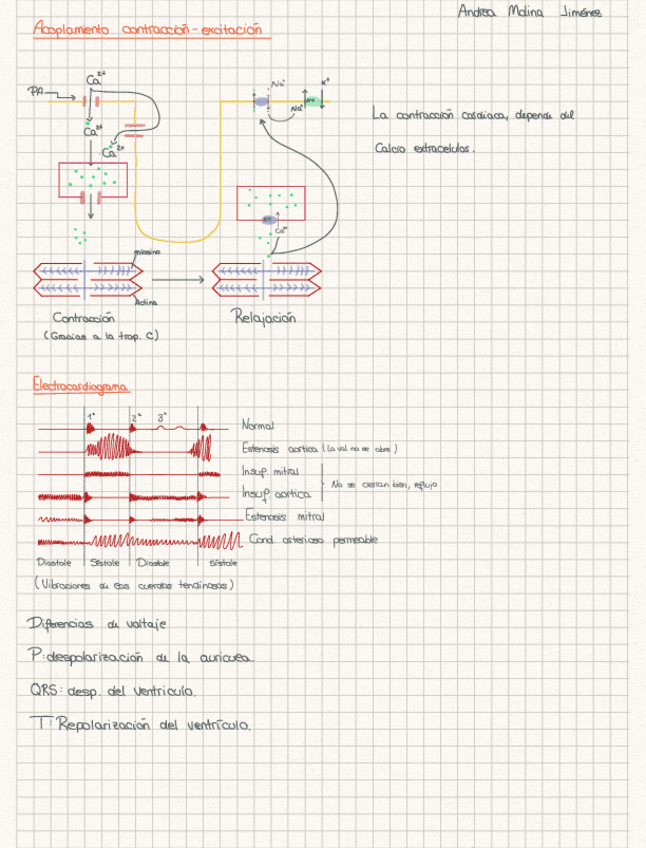 Andrea Molina Jiménez
Acoplamiento contracción-excitación
PA
Ca²⁺
Ca²⁺
Ca²⁺
Na⁺
K⁺
Na⁺
ATP
La contracción cardiaca, depende del
Calcio extracelular.
ATP
Ca²⁺
miosina
Actina
Contracción
Relajación
(Gracias a la trop. C)
Electrocardiograma
1º 2º 3º
Normal
Estenosis aortica (la val no se abre)
Insup mitral
Insuf. aortica
No se cierran bien, reflujo
Estenosis mitral
Cond. arterioso permeable
Diastole Sístole Diastole Sístole
(Vibraciones de las cuerdas tendinosas)
Diferencias de voltaje
P: despolarización de la auricula.
QRS: desp. del ventriculo.
T: Repolarización del ventrículo.